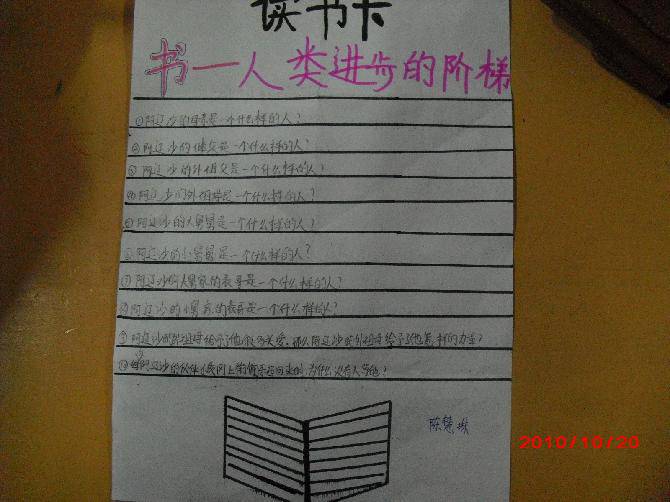 读书卡
书—人类进步的阶梯
①阿辽沙的母亲是一个什么样的人?
②阿辽沙的继父是一个什么样的人?
③阿辽沙的外祖父是一个什么样的人?
④阿辽沙的外祖母是一个什么样的人?
⑤阿辽沙的大舅舅是一个什么样的人?
⑥阿辽沙的小舅舅是一个什么样的人?
⑦阿辽沙的大舅家的表哥是一个什么样的人?
⑧阿辽沙的小舅家的表哥是一个什么样的人?
⑨阿辽沙的外祖母给予了他很多关爱,那么阿辽沙的外祖母给予了他怎样的力量?
阿辽沙的伙伴
为什么没有人
陈慧
2010/10/20